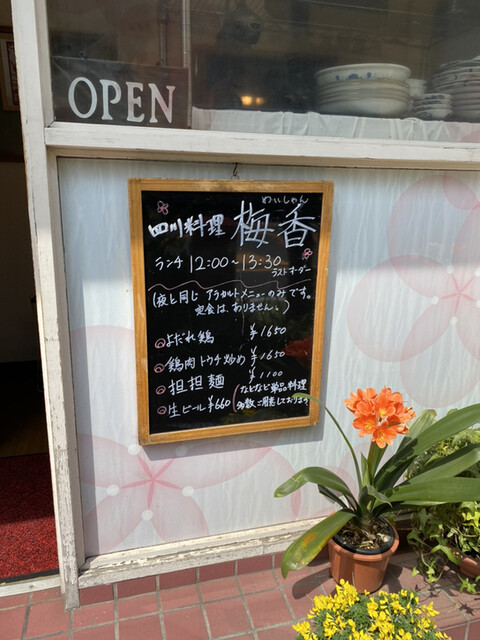 OPEN
めいしゃん
四川料理 梅香
ランチ 12:00~13:30
ラストオーダー
(夜と同じ アラカルトメニューのみです。
定食は、ありません。)
よだれ鶏 ¥1650
鶏肉トウチ炒め ¥1650
担担麺 ¥1100
生ビール ¥660 (などなど単品料理
多数ご用意しております)